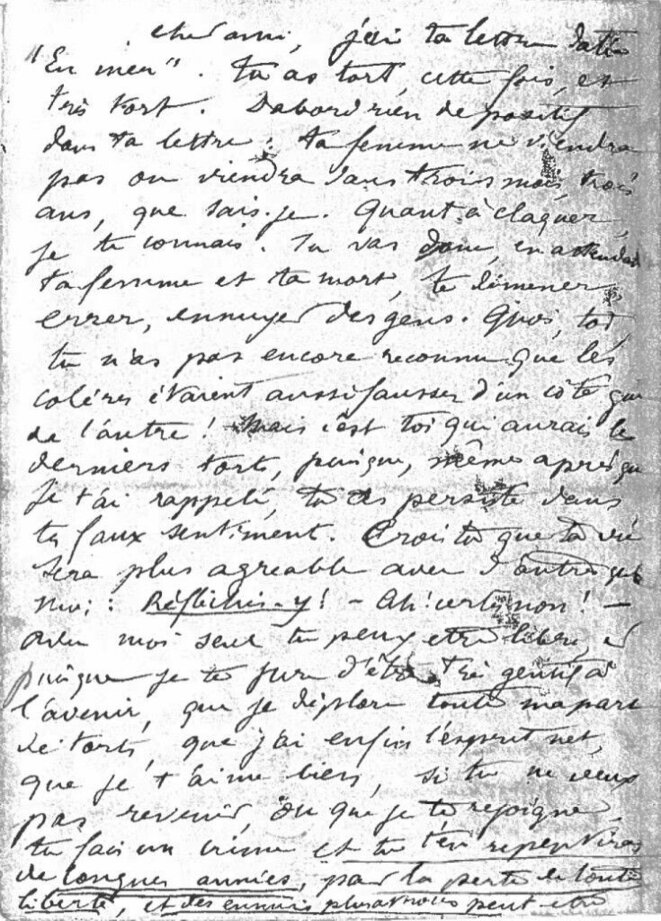 cher ami, j'ai ta lettre datée
"En mer". Tu as tort, cette fois, et
très tort. D'abord rien de positif
dans ta lettre : ta femme ne viendra
pas ou viendra dans trois mois, trois
ans, que sais-je. Quant à claquer,
je te connais. Tu vas donc, en attendant
ta femme et ta mort, te démener,
errer, ennuyer des gens. Quoi, toi,
tu n'as pas encore reconnu que les
colères étaient aussi fausses d'un côté que
de l'autre ! Mais c'est toi qui aurais les
derniers torts, puisque, même après que
je t'ai rappelé, tu as persisté dans
tes faux sentiments. Crois tu que ta vie
sera plus agréable avec d'autres que
moi : Réfléchis-y ! - Ah ! certes non ! -
avec moi seul tu peux être libre, et
puisque je te jure d'être très gentil à
l'avenir, que je déplore toute ma part
de torts, que j'ai enfin l'esprit net,
que je t'aime bien, si tu ne veux
pas revenir, ou que je te rejoigne,
tu fais un crime et tu t'en repentiras
de longues années, par la perte de toute
liberté, et des ennuis plus atroces peut être